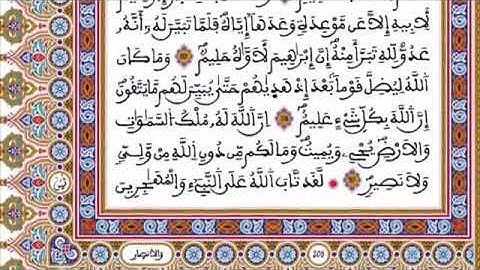 لِأَبِيهِ إِلَّا عَن مَّوْعِدَةٍ وَعَدَهَا إِيَّاهُ فَلَمَّا تَبَيَّنَ لَهُۥ أَنَّهُۥ
عَدُوٌّ لِّلهِ تَبَرَّأَ مِنْهُ إِنَّ إِبْرَٰهِيمَ لَأَوَّٰهٌ حَلِيمٌ وَمَا كَانَ
اَللَّهُ لِيُضِلَّ قَوْماً بَعْدَ إِذْ هَدَيٰهُمْ حَتَّىٰ يُبَيِّنَ لَهُم مَّا يَتَّقُونَ
إِنَّ اَللَّهَ بِكُلِّ شَےْءٍ عَلِيمٌ إِنَّ اَللَّهَ لَهُۥ مُلْكُ اُلسَّمَٰوَٰتِ
وَالْأَرْضِ يُحْيِۦ وَيُمِيتُ وَمَا لَكُم مِّن دُونِ اِللَّهِ مِنْ وَّلِيٍّ
وَلَا نَصِيرٍ لَّقَد تَّابَ اَللَّهُ عَلَى اَلنَّبِےٓءِ وَالْمُهَٰجِرِينَ
وَالانصار
205